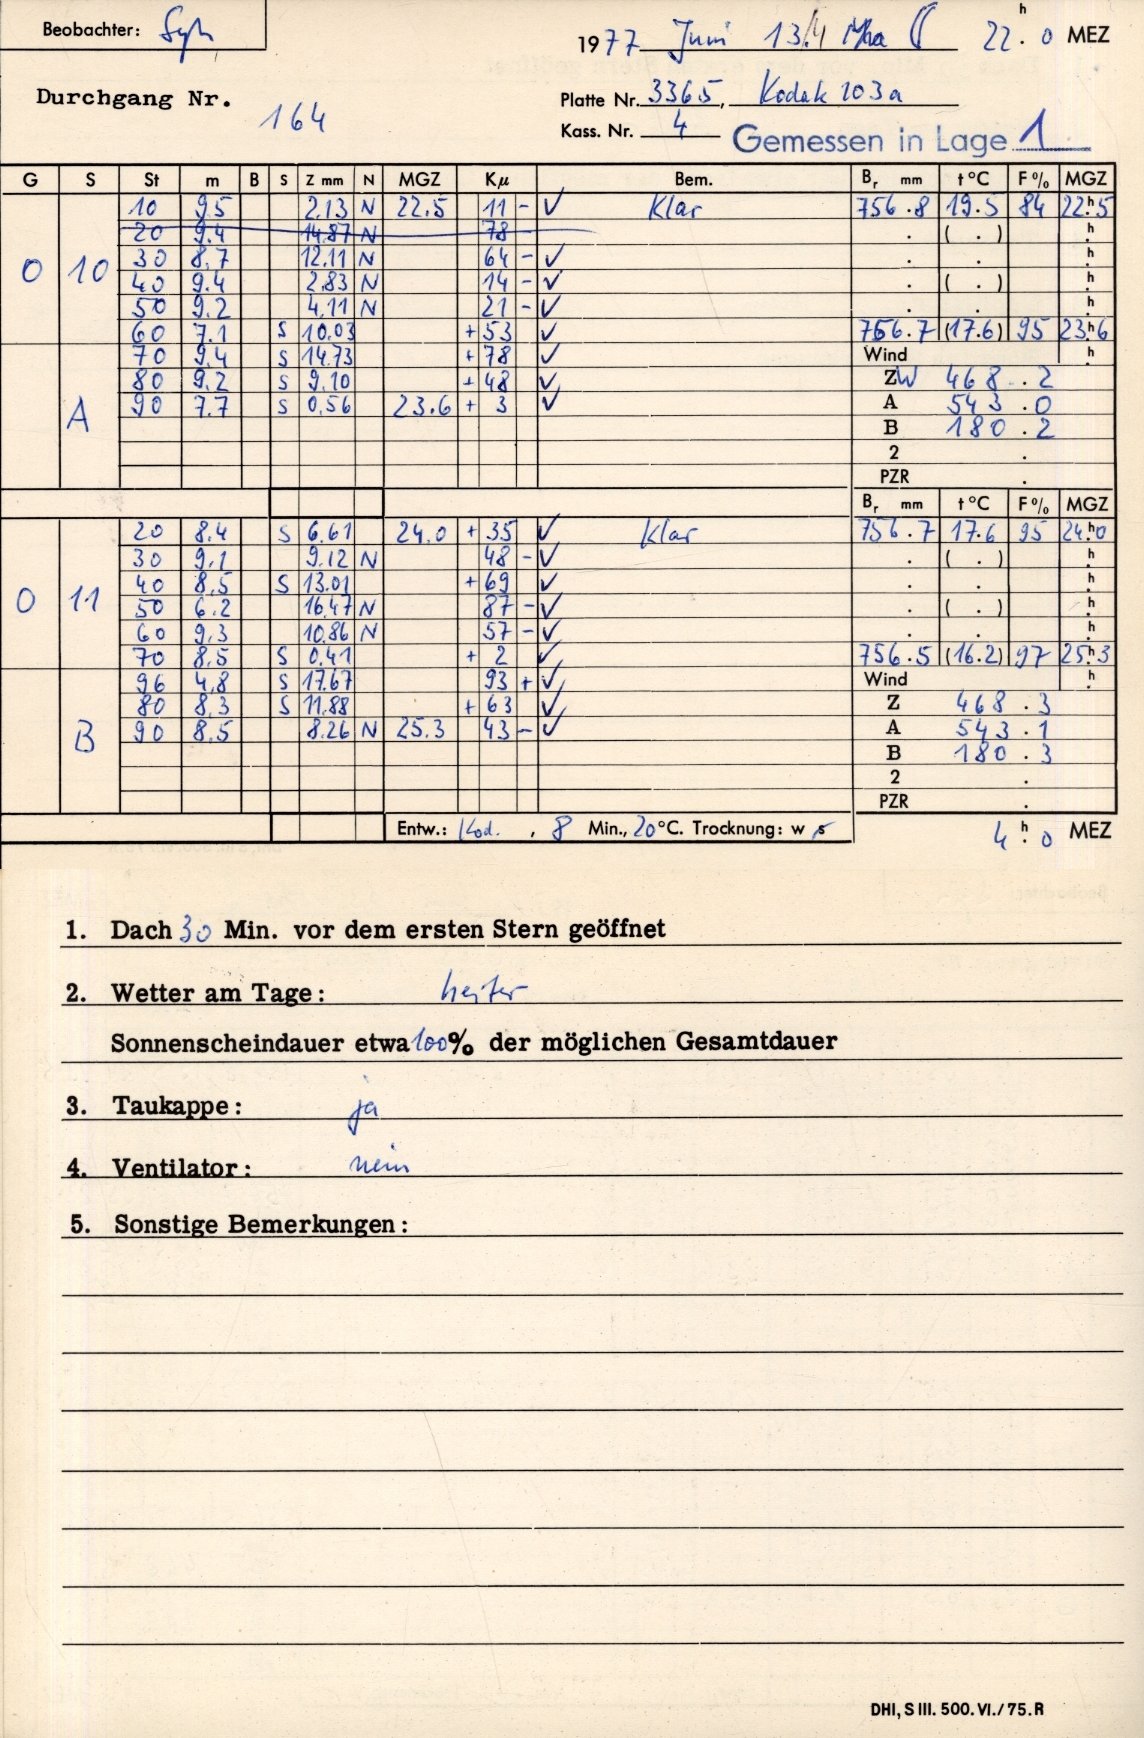 Beobachter:
1977 Juni 13./ 22h.0 MEZ
Durchgang Nr. 164
Platte Nr. 3365, Kodak 103a
Kass. Nr. 4 Gemessen in Lage 1
G S St m B S Z mm N MGZ Kμ Bem. Br mm t°C F% MGZ
10 9.5 2.13 N 22.5 11 - ✓ Klar 756.8 19.5 84 22h.5
20 9.4 14.87 N 78 . ( . ) h
0 10 30 8.7 12.11 N 64 - ✓ . . h
40 9.4 2.83 N 14 - ✓ . ( . ) h
50 9.2 4.11 N 21 - ✓ . . h
60 7.1 S 10.03 + 53 ✓ 756.7 (17.6) 95 23h.6
70 9.4 S 14.73 + 78 ✓ Wind h
80 9.2 S 9.10 + 48 ✓ Z W 468.2
A 90 7.7 S 0.56 23.6 + 3 ✓ A 543.0
B 180.2
2 .
PZR .
Br mm t°C F% MGZ
20 8.4 S 6.61 24.0 + 35 ✓ Klar 756.7 17.6 95 24h.0
30 9.1 9.12 N 48 - ✓ . ( . ) h
40 8.5 S 13.01 + 69 ✓ . . h
0 11 50 6.2 16.47 N 87 - ✓ . ( . ) h
60 9.3 10.86 N 57 - ✓ . . h
70 8.5 S 0.41 + 2 ✓ 756.5 (16.2) 97 25h.3
96 4.8 S 17.67 93 + ✓ Wind h
80 8.3 S 11.88 + 63 ✓ Z 468.3
B 90 8.5 8.26 N 25.3 43 - ✓ A 543.1
B 180.3
2 .
PZR .
Entw.: Kod. , 8 Min., 20°C. Trocknung: w s 4h.0 MEZ
1. Dach 30 Min. vor dem ersten Stern geöffnet
2. Wetter am Tage: heiter
Sonnenscheindauer etwa 100% der möglichen Gesamtdauer
3. Taukappe: ja
4. Ventilator: nein
5. Sonstige Bemerkungen:
DHI, S III. 500. VI./75. R